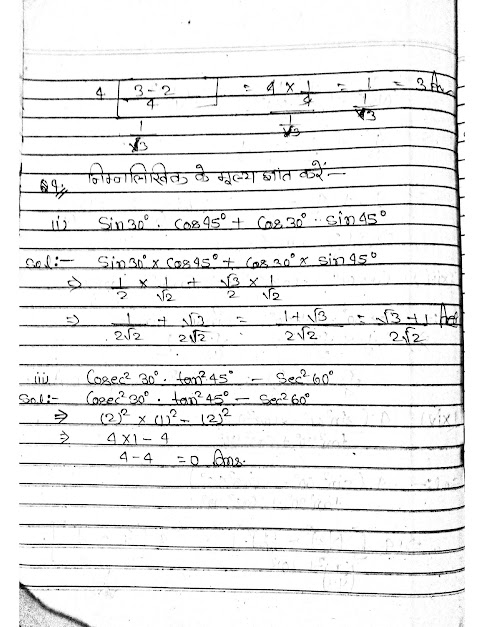 4 [3-2/4] / 1/√3 = 4 × 1/4 / 1/√3 = 1 / 1/√3 = 3 Ans
Q9. निम्नलिखित के मूल्य ज्ञात करें:-
(ii) Sin30°. Cos45° + Cos30°. Sin45°
Sol:- Sin30° × Cos45° + Cos30° × Sin45°
⇒ 1/2 × 1/√2 + √3/2 × 1/√2
⇒ 1/2√2 + √3/2√2 = 1+√3/2√2 = √3+1/2√2 Ans
(iii) Cosec² 30°. tan² 45° - Sec² 60°
Sol:- Cosec² 30°. tan² 45° - Sec² 60°
⇒ (2)² × (1)² - (2)²
⇒ 4×1-4
4-4 = 0 Ans.